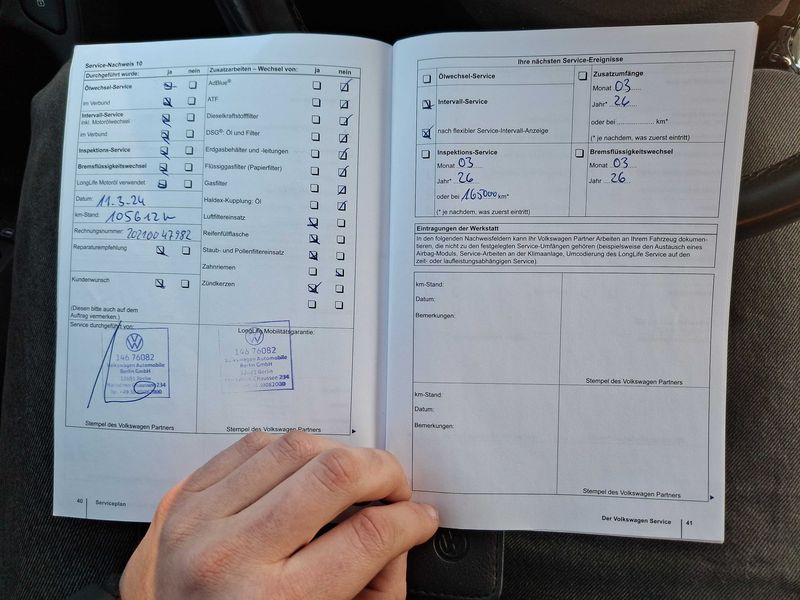 Service-Nachweis 10
Durchgeführt wurde: ja nein
Ölwechsel-Service
im Verbund
Intervall-Service
inkl. Motorölwechsel
im Verbund
Inspektions-Service
Bremsflüssigkeitswechsel
LongLife Motoröl verwendet
Datum: 11.3.24
km-Stand: 105612
Rechnungsnummer: 20210047982
Reparaturempfehlung
Kundenwunsch
(Diesen bitte auch auf dem
Auftrag vermerken.)
Service durchgeführt von:
146 76082
Volkswagen Automobile
Berlin GmbH
12681 Berlin
Stempel des Volkswagen Partners
Zusatzarbeiten – Wechsel von: ja nein
AdBlue®
ATF
Dieselkraftstofffilter
DSG®: Öl und Filter
Erdgasbehälter und -leitungen
Flüssiggasfilter (Papierfilter)
Gasfilter
Haldex-Kupplung: Öl
Luftfiltereinsatz
Reifenfüllflasche
Staub- und Pollenfiltereinsatz
Zahnriemen
Zündkerzen
LongLife Mobilitätsgarantie:
146 76082
Volkswagen Automobile
Berlin GmbH
12681 Berlin
Stempel des Volkswagen Partners
40 Serviceplan
Ihre nächsten Service-Ereignisse
Ölwechsel-Service
Intervall-Service
nach flexibler Service-Intervall-Anzeige
Zusatzumfänge
Monat 03
Jahr* 26
oder bei km*
(* je nachdem, was zuerst eintritt)
Inspektions-Service
Monat 03
Jahr* 26
oder bei 165000 km*
(* je nachdem, was zuerst eintritt)
Bremsflüssigkeitswechsel
Monat 03
Jahr 26
Eintragungen der Werkstatt
In den folgenden Nachweisfeldern kann Ihr Volkswagen Partner Arbeiten an Ihrem Fahrzeug dokumen-
tieren, die nicht zu den festgelegten Service-Umfängen gehören (beispielsweise den Austausch eines
Airbag-Moduls, Service-Arbeiten an der Klimaanlage, Umcodierung des LongLife Service auf den
zeit- oder laufleistungsabhängigen Service).
km-Stand:
Datum:
Bemerkungen:
Stempel des Volkswagen Partners
km-Stand:
Datum:
Bemerkungen:
Stempel des Volkswagen Partners
Der Volkswagen Service 41